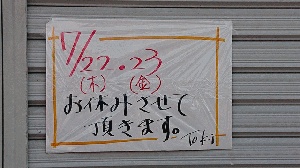 7/22.23
(木)(金)
お休みさせて
頂きます。